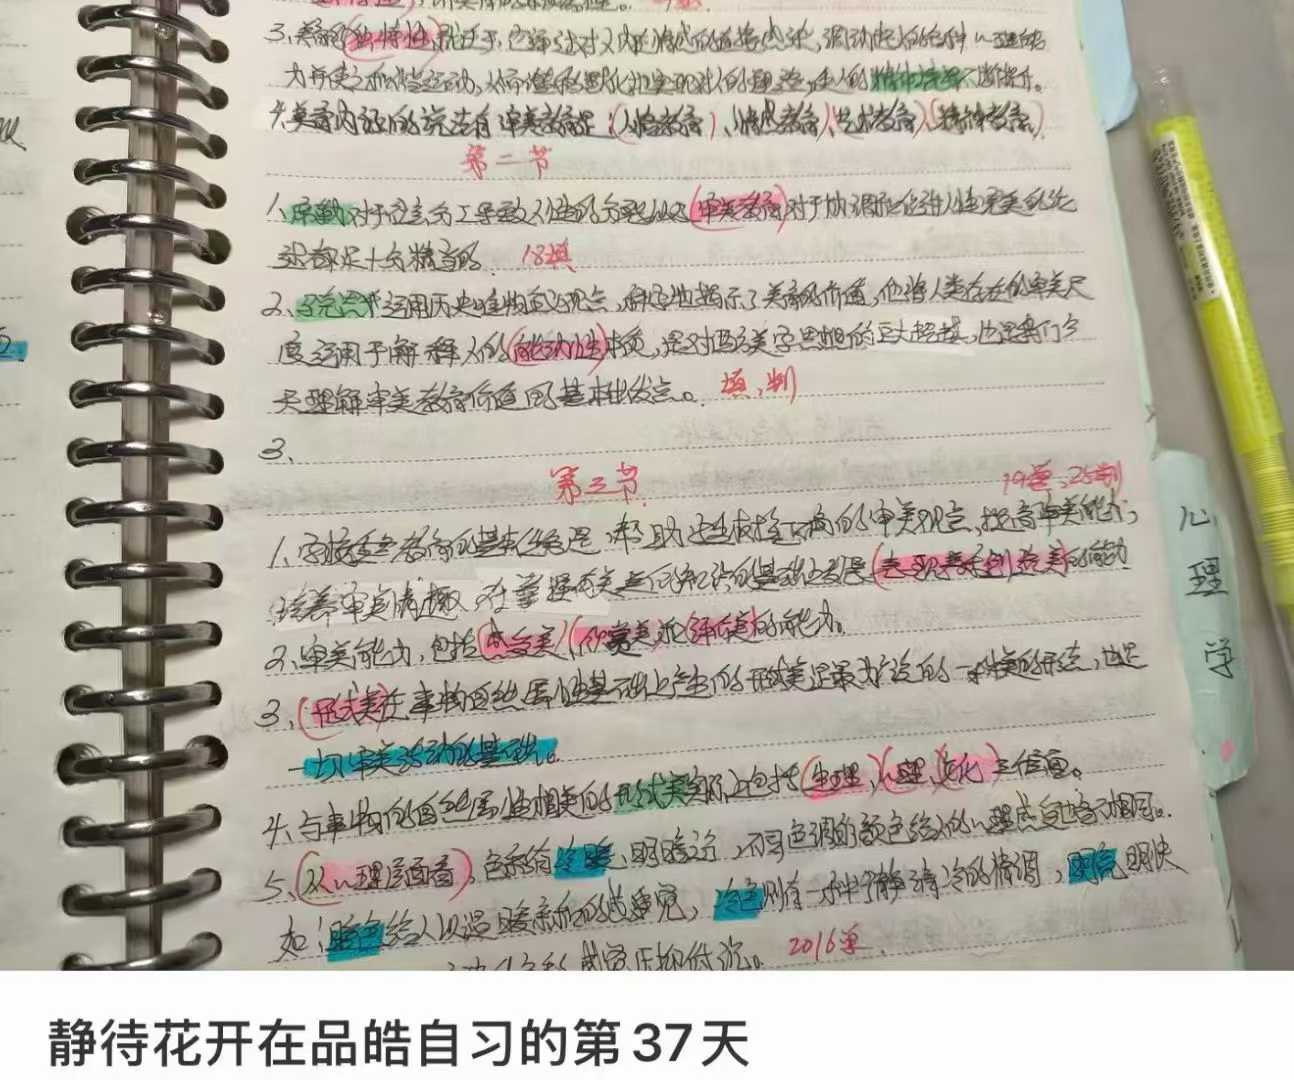 3、美育的独特性就在于,它通过对人内在情感的直接感染,调动起人的各种心理功
4、美育内涵的说法有审美教育是:(人格教育)、(情感教育)、(艺术教育)、(精神教育)
第二节
1、席勒对于社会分工导致人性的分裂以及(审美教育)对于协调和促进人性完美的论
述都是十分精辟的。 18填
2、马克思运用历史唯物主义观点,科学地揭示了美育的价值,他将人类存在的审美尺
度运用于解释人的(能动性)本质,是对西方美学思想的巨大超越,也是我们今
天理解审美教育价值的基本出发点。 填、判
3、
第三节
1、学校美育的基本任务是:帮助学生树立正确的审美观点,提高审美能力;
培养审美情趣,在掌握有关美的知识的基础上发展(表现美和创造美)的能力
2、审美能力,包括(感受美)(欣赏美)和评价美的能力。
3、(形式美)在事物自然属性基础上产生的形式美是最为广泛的一种美的形态,也是
一切审美活动的基础。
4、与事物的自然属性相关的形式美实际上包括(生理)(心理)(文化)三个层面。
5、(从心理层面看),色彩有冷暖、明暗之分,不同色调的颜色给人的心理感觉也各不相同。
如:暖色给人以温暖亲和的感觉,冷色则有一种宁静清冷的情调,明亮明快
感觉压抑低沉。 2016单
心理学
静待花开在品皓自习的第37天